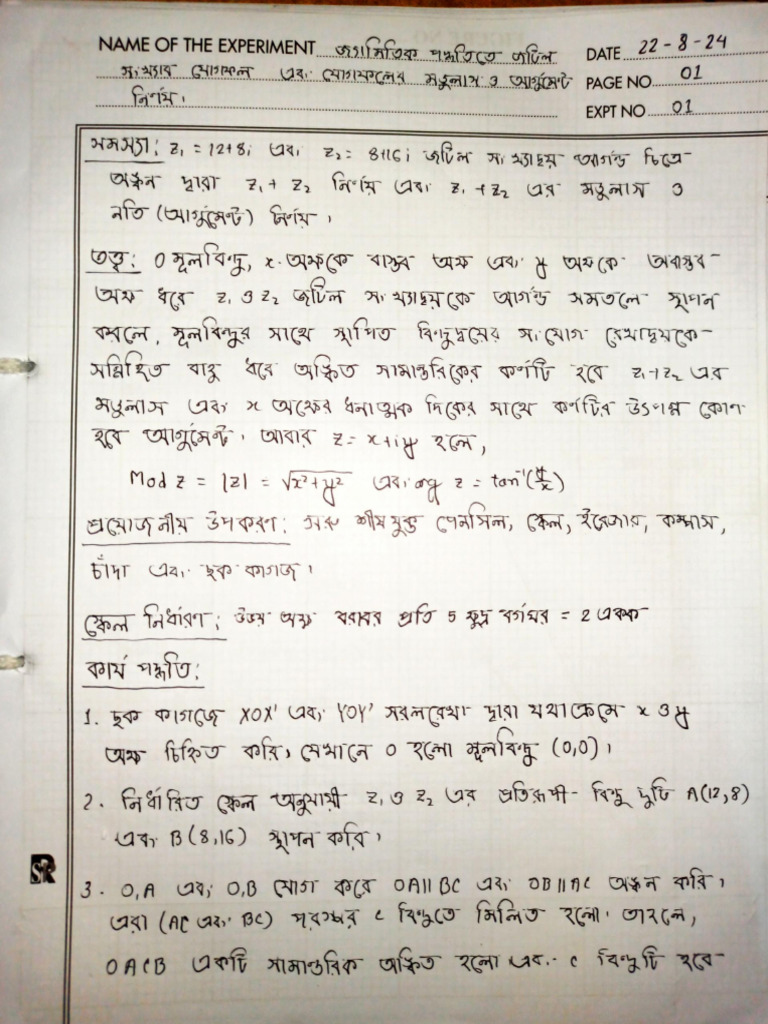 NAME OF THE EXPERIMENT জ্যামিতিক পদ্ধতিতে জটিল
সংখ্যার যোগফল এবং যোগফলের মডুলাস ও আর্গুমেন্ট
নির্ণয়।
DATE 22-8-24
PAGE NO 01
EXPT NO 01
সমস্যা: z₁ = 12+8i এবং z₂ = 8+16i জটিল সংখ্যাদ্বয় আর্গন্ড চিত্রে
অঙ্কন দ্বারা z₁ + z₂ নির্ণয় এবং z₁ + z₂ এর মডুলাস ও
নতি (আর্গুমেন্ট) নির্ণয়।
তত্ত্ব: O মূলবিন্দু, x-অক্ষকে বাস্তব অক্ষ এবং y অক্ষকে অবাস্তব
অক্ষ ধরে z₁ ও z₂ জটিল সংখ্যাদ্বয়কে আর্গন্ড সমতলে স্থাপন
করলে, মূলবিন্দুর সাথে স্থাপিত বিন্দুদ্বয়ের সংযোগ রেখাদ্বয়কে
সন্নিহিত বাহু ধরে অঙ্কিত সামান্তরিকের কর্ণটি হবে z₁+z₂ এর
মডুলাস এবং x অক্ষের ধনাত্মক দিকের সাথে কর্ণটির উৎপন্ন কোণ
হবে আর্গুমেন্ট। আবার z = x+iy হলে,
Mod z = |z| = √x²+y² এবং arg z = tan⁻¹(y/x)
প্রয়োজনীয় উপকরণ: সরু শীষযুক্ত পেনসিল, স্কেল, ইরেজার, কম্পাস,
চাঁদা এবং ছক কাগজ।
স্কেল নির্ধারণ: উভয় অক্ষ বরাবর প্রতি 5 ক্ষুদ্র বর্গঘর = 2 একক
কার্য পদ্ধতি:
1. ছক কাগজে XOX' এবং YOY' সরলরেখা দ্বারা যথাক্রমে x ও y
অক্ষ চিহ্নিত করি, যেখানে O হলো মূলবিন্দু (0,0)।
2. নির্ধারিত স্কেল অনুযায়ী z₁ ও z₂ এর প্রতিরূপী বিন্দু দুটি A(12,8)
এবং B(8,16) স্থাপন করি।
3. O,A এবং O,B যোগ করে OA||BC এবং OB||AC অঙ্কন করি,
এরা (AC এবং BC) পরস্পর C বিন্দুতে মিলিত হলো। তাহলে,
OACB একটি সামান্তরিক অঙ্কিত হলো এবং C বিন্দুটি হবে
SR